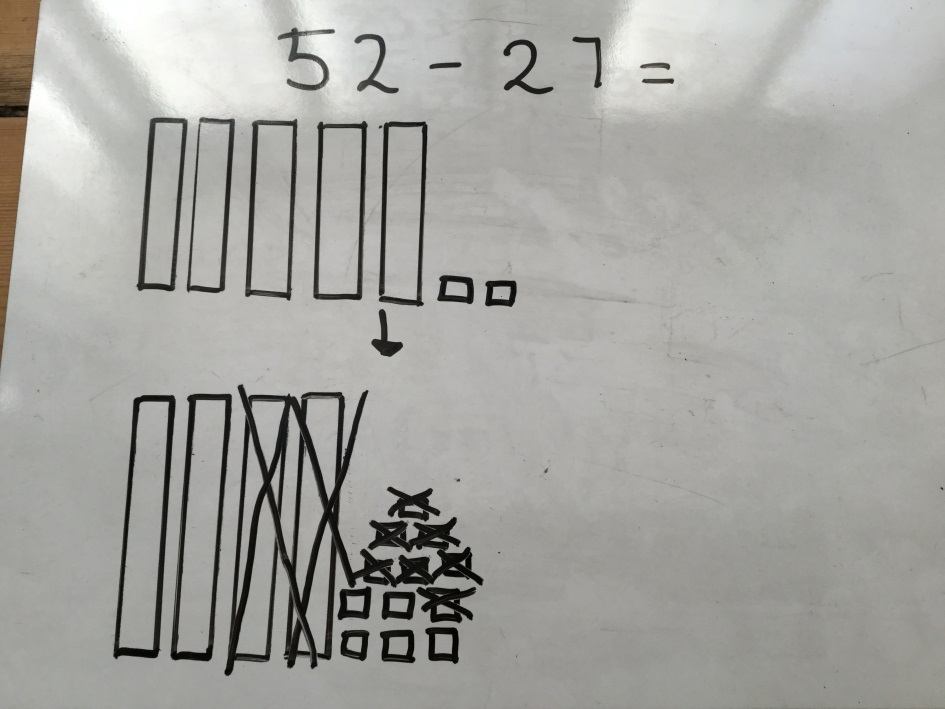 52 - 27 =